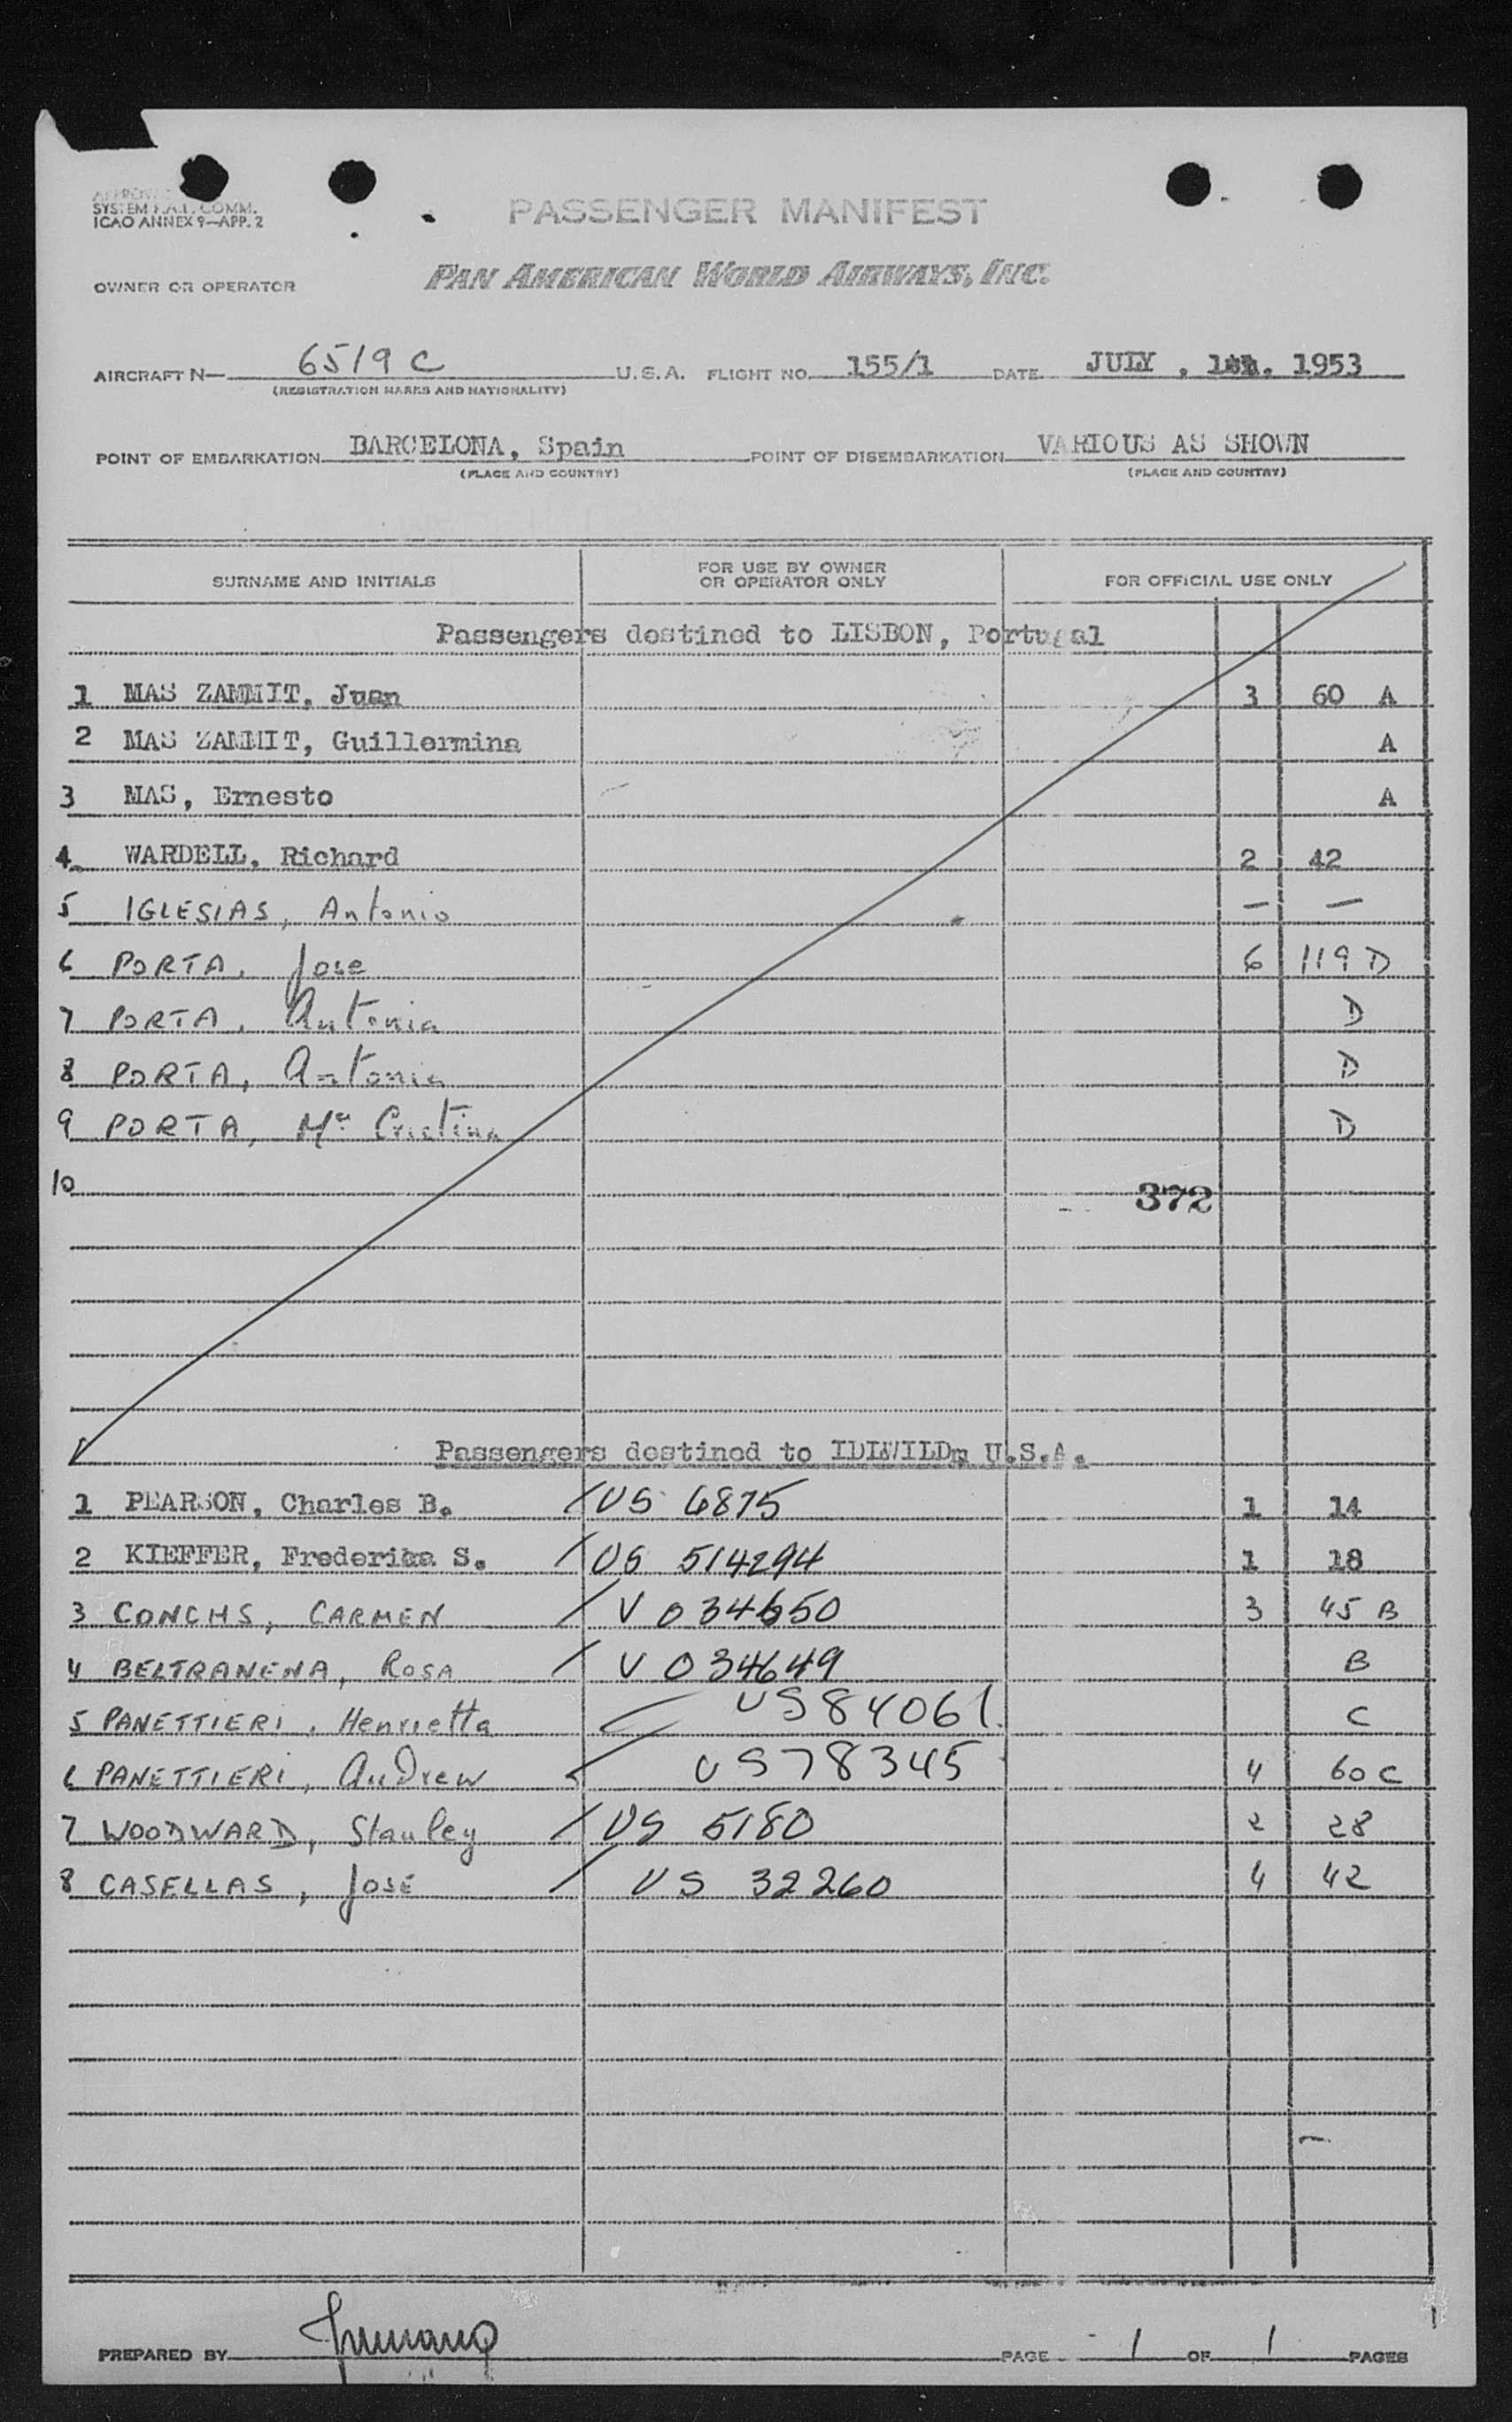 SYSTEM F.A.L. COMM.
ICAO ANNEX 9—APP. 2
PASSENGER MANIFEST
OWNER OR OPERATOR PAN AMERICAN WORLD AIRWAYS, INC.
AIRCRAFT N— 6519 C U.S.A. FLIGHT NO. 155/1 DATE JULY , 1953
(REGISTRATION MARKS AND NATIONALITY)
POINT OF EMBARKATION BARCELONA, Spain POINT OF DISEMBARKATION VARIOUS AS SHOWN
(PLACE AND COUNTRY) (PLACE AND COUNTRY)
SURNAME AND INITIALS FOR USE BY OWNER OR OPERATOR ONLY FOR OFFICIAL USE ONLY
Passengers destined to LISBON, Portugal
1 MAS ZAMMIT, Juan 3 60 A
2 MAS ZAMMIT, Guillermina A
3 MAS, Ernesto A
4 WARDELL, Richard 2 42
5 IGLESIAS, Antonio — —
6 PORTA, Jose 6 119 D
7 PORTA, Antonia D
8 PORTA, Antonia D
9 PORTA, Mª Cristina D
10
372
Passengers destined to IDLWILDm U.S.A.
1 PEARSON, Charles B. US 6875 1 14
2 KIEFFER, S. US 514294 1 18
3 CONCHS, CARMEN V 034650 3 45 B
4 BELTRANENA, Rosa V 034649 B
5 PANETTIERI, Henrietta US 84061. C
6 PANETTIERI, Andrew US 78345 4 60 C
7 WOODWARD, Stanley US 5180 2 28
8 CASELLAS, José US 32260 4 42
PREPARED BY PAGE 1 OF 1 PAGES